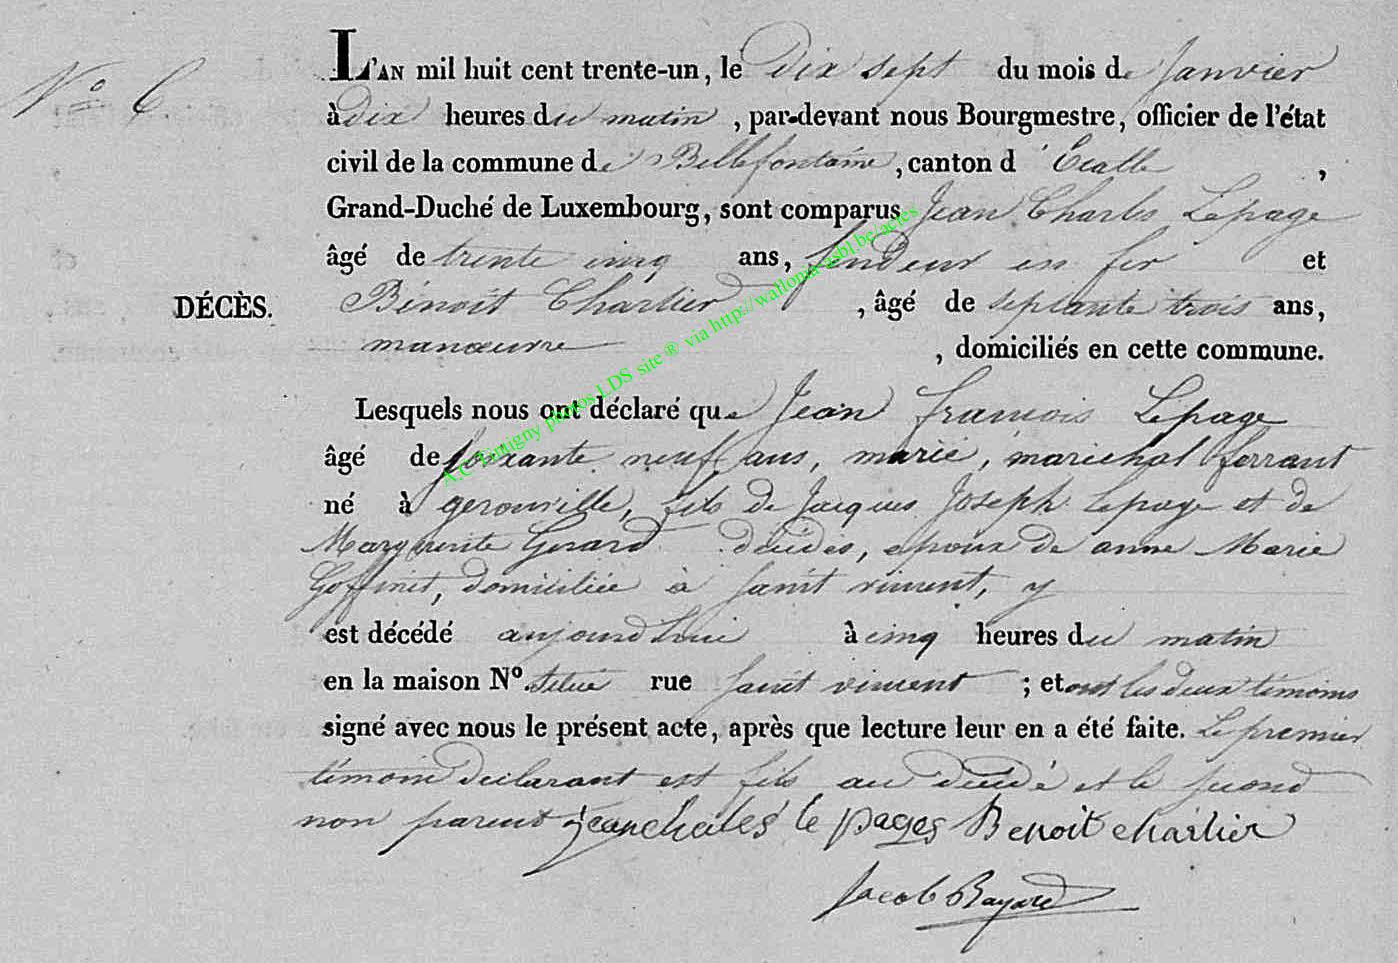 N° 6
L'AN mil huit cent trente-un, le Dix sept du mois de Janvier
à dix heures du matin, par-devant nous Bourgmestre, officier de l'état
civil de la commune de Bellefontaine, canton d'Etalle,
Grand-Duché de Luxembourg, sont comparus Jean Charles Lepage
âgé de trente cinq ans, fendeur en fer et
DÉCÈS. Bénoit Charlier, âgé de septante trois ans,
manœuvre, domiciliés en cette commune.
Lesquels nous ont déclaré que Jean françois Lepage
âgé de soixante neuf ans, marié, maréchal ferrant
né à gerouville, fils de Jacques Joseph Lepage et de
Marguerite Gerard décédés, epoux de anne Marie
Goffinet, domiciliée à saint vincent, y
est décédé aujourd'hui à cinq heures du matin
en la maison N°. située rue saint vincent ; et ont les deux témoins
signé avec nous le présent acte, après que lecture leur en a été faite. Le premier
témoin declarant est fils au décédé et le second
non parent jean charles le pages Benoit charlier
Jacob Bayard
A.C Tintigny photos LDS site ® via http://wallonia-asbl.be/actes